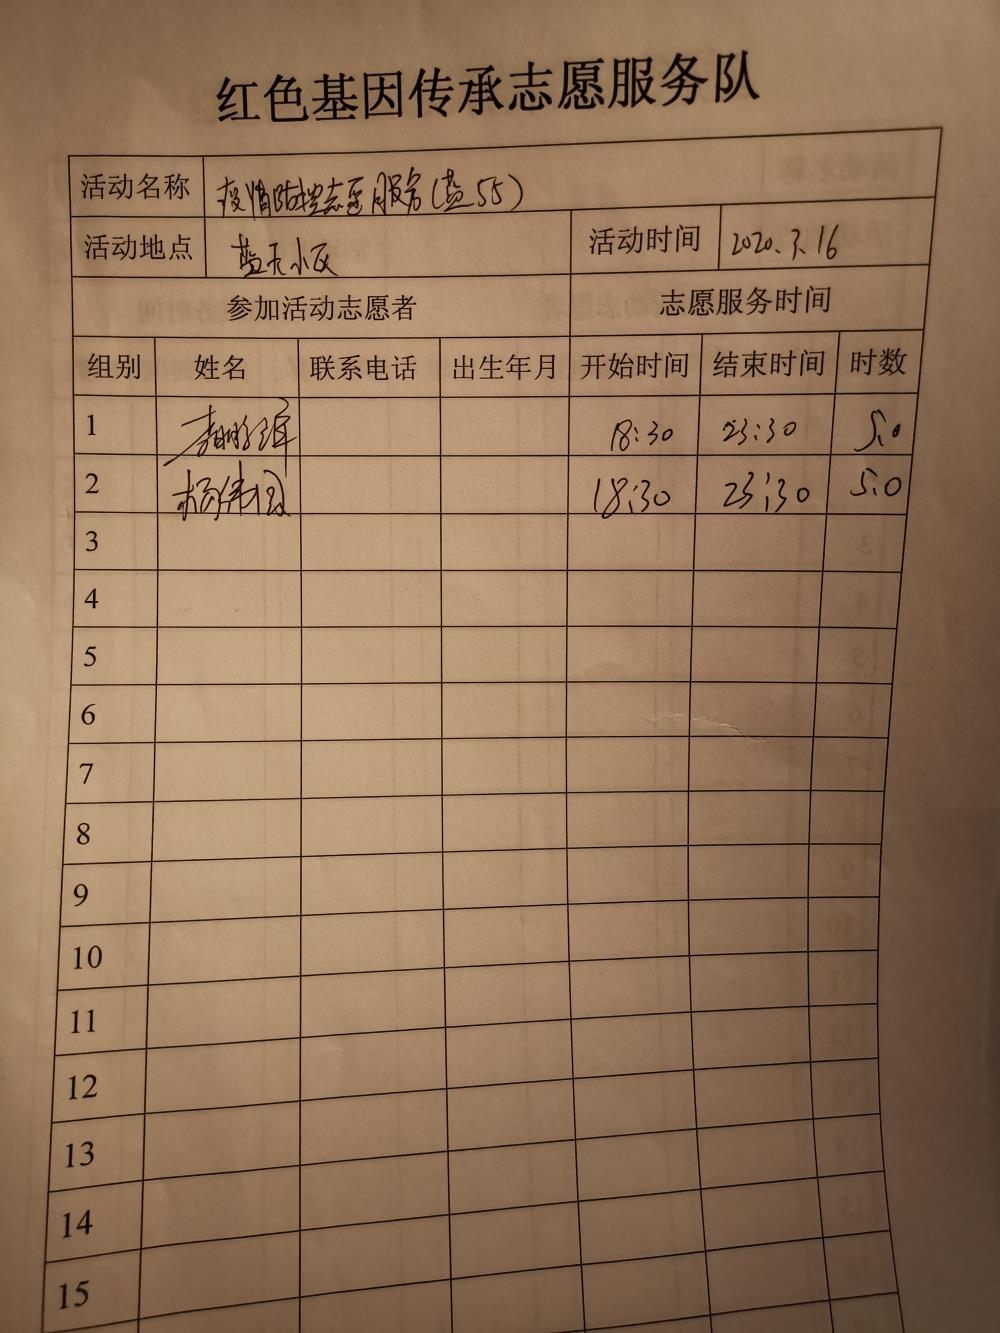 红色基因传承志愿服务队
活动名称 疫情防控志愿服务(蓝55)
活动地点 蓝天小区 活动时间 2020.3.16
参加活动志愿者 志愿服务时间
组别 姓名 联系电话 出生年月 开始时间 结束时间 时数
1 18:30 23:30 5.0
2 杨伟国 18:30 23:30 5.0
3
4
5
6
7
8
9
10
11
12
13
14
15